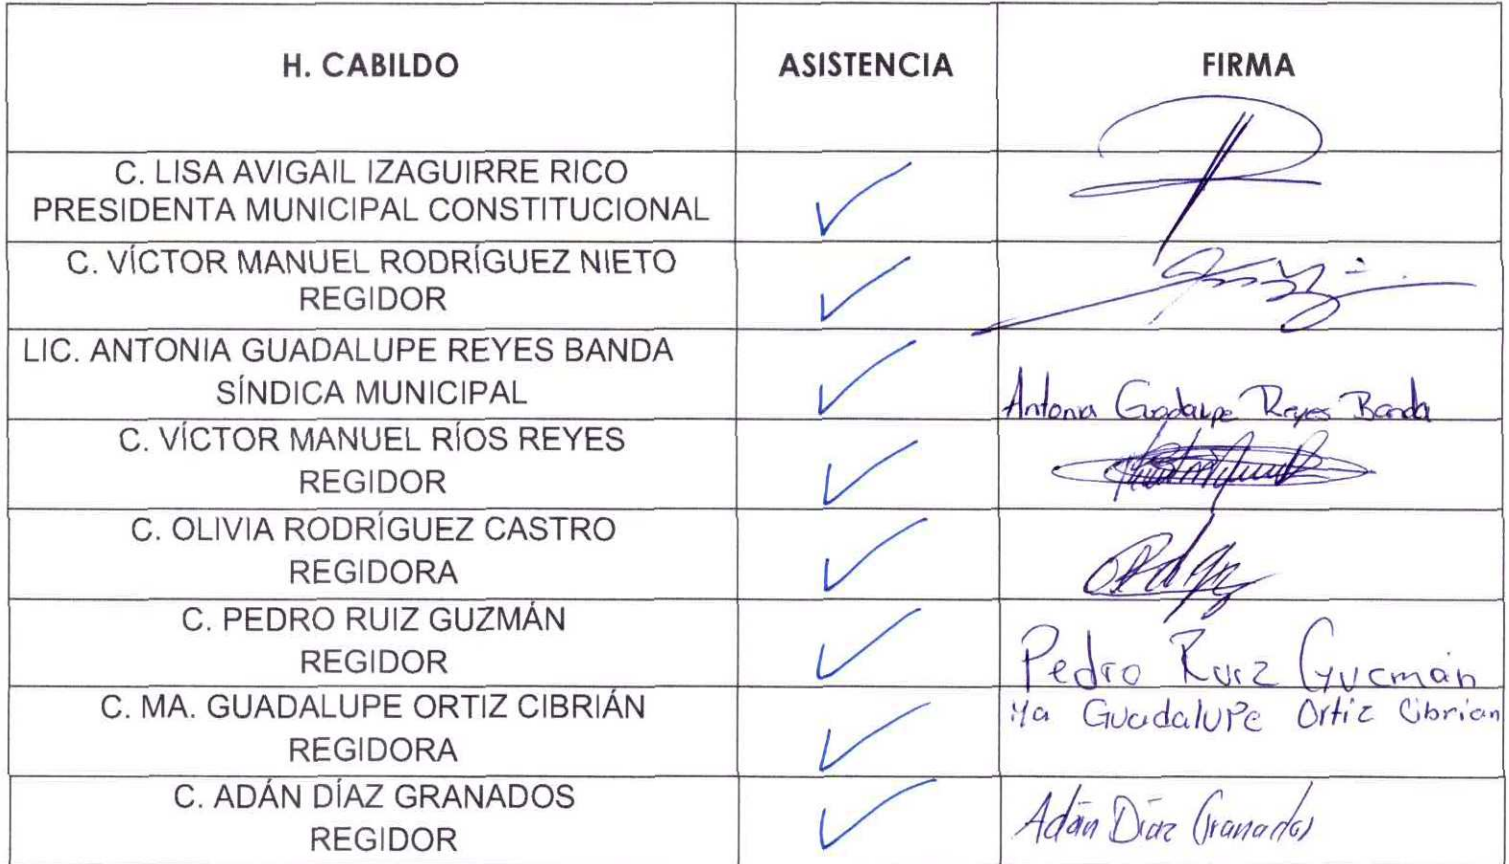 H. CABILDO ASISTENCIA FIRMA
C. LISA AVIGAIL IZAGUIRRE RICO
PRESIDENTA MUNICIPAL CONSTITUCIONAL
C. VÍCTOR MANUEL RODRÍGUEZ NIETO
REGIDOR
LIC. ANTONIA GUADALUPE REYES BANDA
SÍNDICA MUNICIPAL
Antonia Guadalupe Reyes Banda
C. VÍCTOR MANUEL RÍOS REYES
REGIDOR
C. OLIVIA RODRÍGUEZ CASTRO
REGIDORA
C. PEDRO RUIZ GUZMÁN
REGIDOR
Pedro Ruiz Gucmán
C. MA. GUADALUPE ORTIZ CIBRIÁN
REGIDORA
Ma Guadalupe Ortiz Cibrian
C. ADÁN DÍAZ GRANADOS
REGIDOR
Adán Díaz Granados